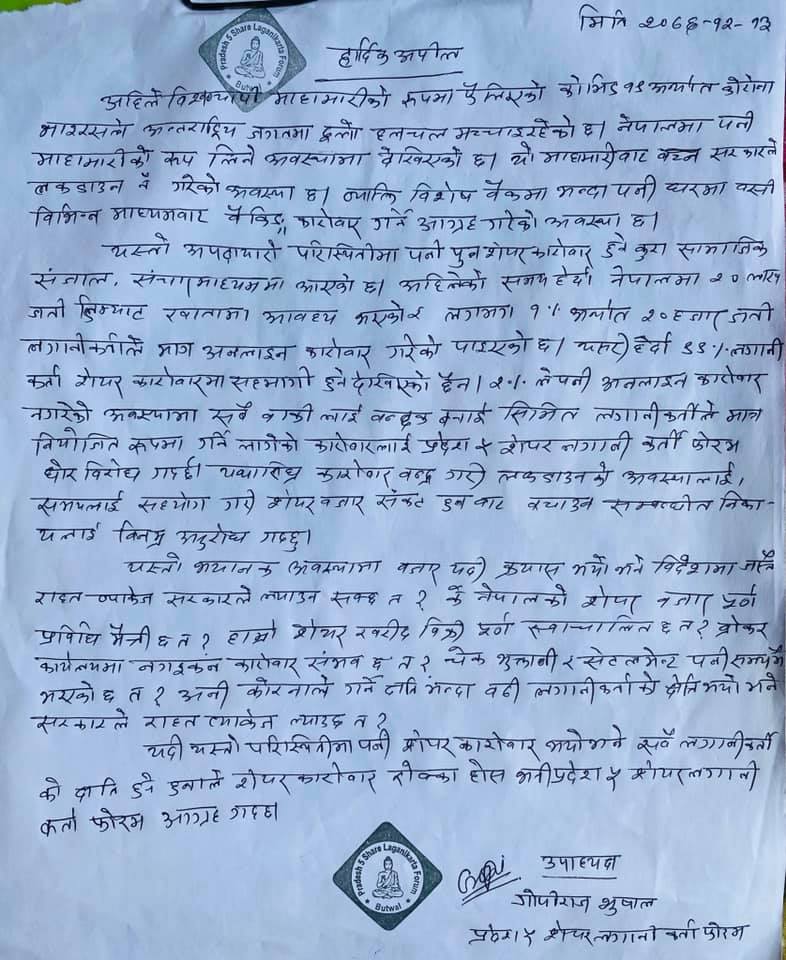 मिति २०७६-१२-१३
Pradesh 5 Share Laganikarta Forum
Butwal
हार्दिक अपील
अहिले विश्वव्यापी माहामारीको रूपमा फैलिएको कोभिड १९ अर्थात कोरोना
भाइरसले अन्तराष्ट्रिय जगतमा ठूलो हलचल मच्चाइरहेको छ। नेपालमा पनी
माहामारीको रूप लिने अवस्थामा देखिएको छ। यो माहामारीवाट वच्न सरकारले
लकडाउन नै गरेको अवस्था छ। त्यति विशेष वैंकमा भन्दा पनी घरमा वसी
विभिन्न माध्यमवाट वैकिङ्ग कारोवार गर्न आग्रह गरेको अवस्था छ।
यस्तो अपठ्यारो परिस्थितीमा पनी पुन शेयर कारोवार हुने कुरा सामाजिक
संजाल, संचार माध्यममा आएको छ। अहिलेको समय हेर्दा नेपालमा २० लाख
जती डिम्याट खातामा आवध्य भएकोमा लगभग १% अर्थात २० हजार जती
लगानीकर्ताले मात्र अनलाइन कारोवार गरेको पाइएको छ। यसरी हेर्दा ९९% लगानी
कर्ता शेयर कारोवारमा सहभागी हुने देखिएको छैन। २% ले पनी अनलाइन कारोवार
नगरेको अवस्थामा सवै वाकी लाई वन्धक वनाई सिमित लगानीकर्ताले मात्र
नियोजित रूपमा गर्न लागेको कारोवारलाई प्रदेश ५ शेयर लगानी कर्ता फोरम
घोर विरोध गर्दछ। यथाशिघ्र कारोवार वन्द गरी लकडाउनको अवस्थालाई,
समयलाई सहयोग गरी शेयर वजार संकट हुन वाट वचाउन सम्वन्धीत निका-
यलाई विनम्र अनुरोध गर्दछु।
यस्तो भयानक अवस्थामा वजार यदी क्र्यास भयो भने विदेशमा जस्तै
राहत प्याकेज सरकारले ल्याउन सक्छ त? के नेपालको शेयर वजार पूर्ण
प्रविधि मैत्री छ त? हाम्रो शेयर खरीद विक्री पूर्ण स्वाचालित छ त? ब्रोकर
कार्यलयमा नगइकन कारोवार संभव छ त? चेक भुक्तानी र सेटलमेन्ट पनी समयमै
भएको छ त? अनी कोरनाले गर्ने क्षति भन्दा वढी लगानीकर्ताको क्षेति भयो भने
सरकारले राहत प्याकेज ल्याउछ त?
यदी यस्तो परिस्थितीमा पनी शेयर कारोवार भयो भने सवै लगानीकर्ता
को क्षति हुने हुनाले शेयर कारोवार रोक्का होस भनी प्रदेश ५ शेयर लगानी
कर्ता फोरम आग्रह गर्दछ।
Pradesh 5 Share Laganikarta Forum
Butwal
उपाध्यक्ष
गोपीराज भुषाल
प्रदेश ५ शेयर लगानी कर्ता फोरम